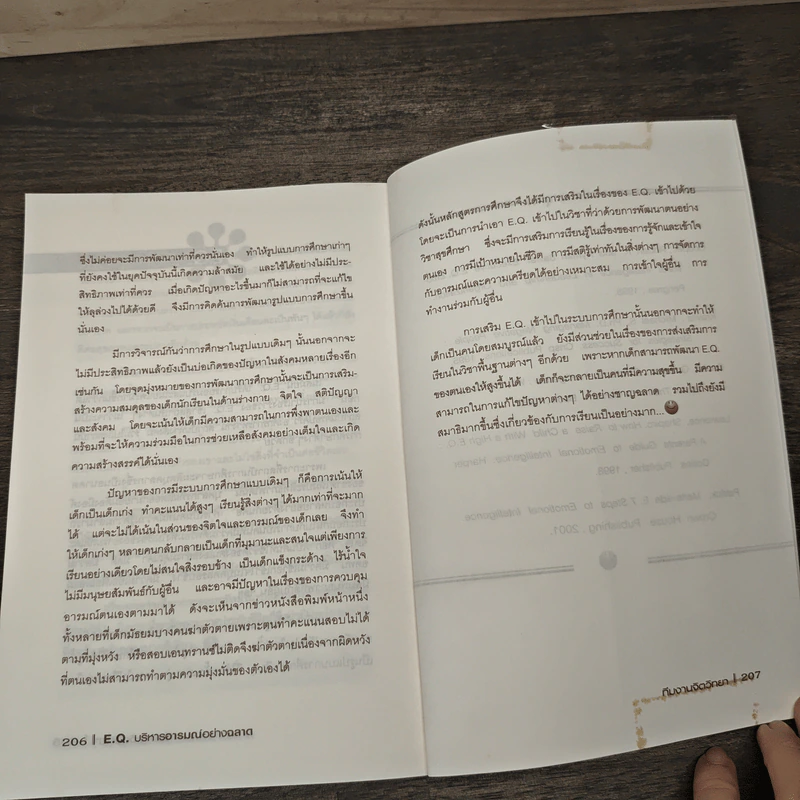 ซึ่งไม่ค่อยจะมีการพัฒนาเท่าที่ควรนั่นเอง ทำให้รูปแบบการศึกษาเก่าๆ
ที่ยังคงใช้ในยุคปัจจุบันนี้เกิดความล้าสมัย และใช้ได้อย่างไม่มีประ-
สิทธิภาพเท่าที่ควร เมื่อเกิดปัญหาอะไรขึ้นมาก็ไม่สามารถที่จะแก้ไข
ให้ลุล่วงไปได้ด้วยดี จึงมีการคิดค้นการพัฒนารูปแบบการศึกษาขึ้น
นั่นเอง
มีการวิจารณ์กันว่าการศึกษาในรูปแบบเดิมๆ นั้นนอกจากจะ
ไม่มีประสิทธิภาพแล้วยังเป็นบ่อเกิดของปัญหาในสังคมหลายเรื่องอีก
เช่นกัน โดยจุดมุ่งหมายของการพัฒนาการศึกษานั้นจะเป็นการเสริม-
สร้างความสมดุลของเด็กนักเรียนในด้านร่างกาย จิตใจ สติปัญญา
และสังคม โดยจะเน้นให้เด็กมีความสามารถในการพึ่งพาตนเองและ
พร้อมที่จะให้ความร่วมมือในการช่วยเหลือสังคมอย่างเต็มใจและเกิด
ความสร้างสรรค์ได้นั่นเอง
ปัญหาของการมีระบบการศึกษาแบบเดิมๆ ก็คือการเน้นให้
เด็กเป็นเด็กเก่ง ทำคะแนนได้สูงๆ เรียนรู้สิ่งต่างๆ ได้มากเท่าที่จะมาก
ได้ แต่จะไม่ได้เน้นในส่วนของจิตใจและอารมณ์ของเด็กเลย จึงทำ
ให้เด็กเก่งๆ หลายคนกลับกลายเป็นเด็กที่มุมานะและสนใจแต่เพียงการ
เรียนอย่างเดียวโดยไม่สนใจสิ่งรอบข้าง เป็นเด็กแข็งกระด้าง ไร้น้ำใจ
ไม่มีมนุษยสัมพันธ์กับผู้อื่น และอาจมีปัญหาในเรื่องของการควบคุม
อารมณ์ตนเองตามมาได้ ดังจะเห็นจากข่าวหนังสือพิมพ์หน้าหนึ่ง
ทั้งหลายที่เด็กมัธยมบางคนฆ่าตัวตายเพราะตนทำคะแนนสอบไม่ได้
ตามที่มุ่งหวัง หรือสอบเอนทรานซ์ไม่ติดจึงฆ่าตัวตายเนื่องจากผิดหวัง
ที่ตนเองไม่สามารถทำตามความมุ่งมั่นของตัวเองได้
206 | E.Q. บริหารอารมณ์อย่างฉลาด
ดังนั้นหลักสูตรการศึกษาจึงได้มีการเสริมในเรื่องของ E.Q. เข้าไปด้วย
โดยจะเป็นการนำเอา E.Q. เข้าไปในวิชาที่ว่าด้วยการพัฒนาตนอย่าง
วิชาสุขศึกษา ซึ่งจะมีการเสริมการเรียนรู้ในเรื่องของการรู้จักและเข้าใจ
ตนเอง การมีเป้าหมายในชีวิต การมีสติรู้เท่าทันในสิ่งต่างๆ การจัดการ
กับอารมณ์และความเครียดได้อย่างเหมาะสม การเข้าใจผู้อื่น การ
ทำงานร่วมกับผู้อื่น
การเสริม E.Q. เข้าไปในระบบการศึกษานั้นนอกจากจะทำให้
เด็กเป็นคนโดยสมบูรณ์แล้ว ยังมีส่วนช่วยในเรื่องของการส่งเสริมการ
เรียนในวิชาพื้นฐานต่างๆ อีกด้วย เพราะหากเด็กสามารถพัฒนา E.Q.
ของตนเองให้สูงขึ้นได้ เด็กก็จะกลายเป็นคนที่มีความสุขขึ้น มีความ
สามารถในการแก้ไขปัญหาต่างๆ ได้อย่างชาญฉลาด รวมไปถึงยังมี
สมาธิมากขึ้นซึ่งเกี่ยวข้องกับการเรียนเป็นอย่างมาก...
ทีมงานจิตวิทยา | 207